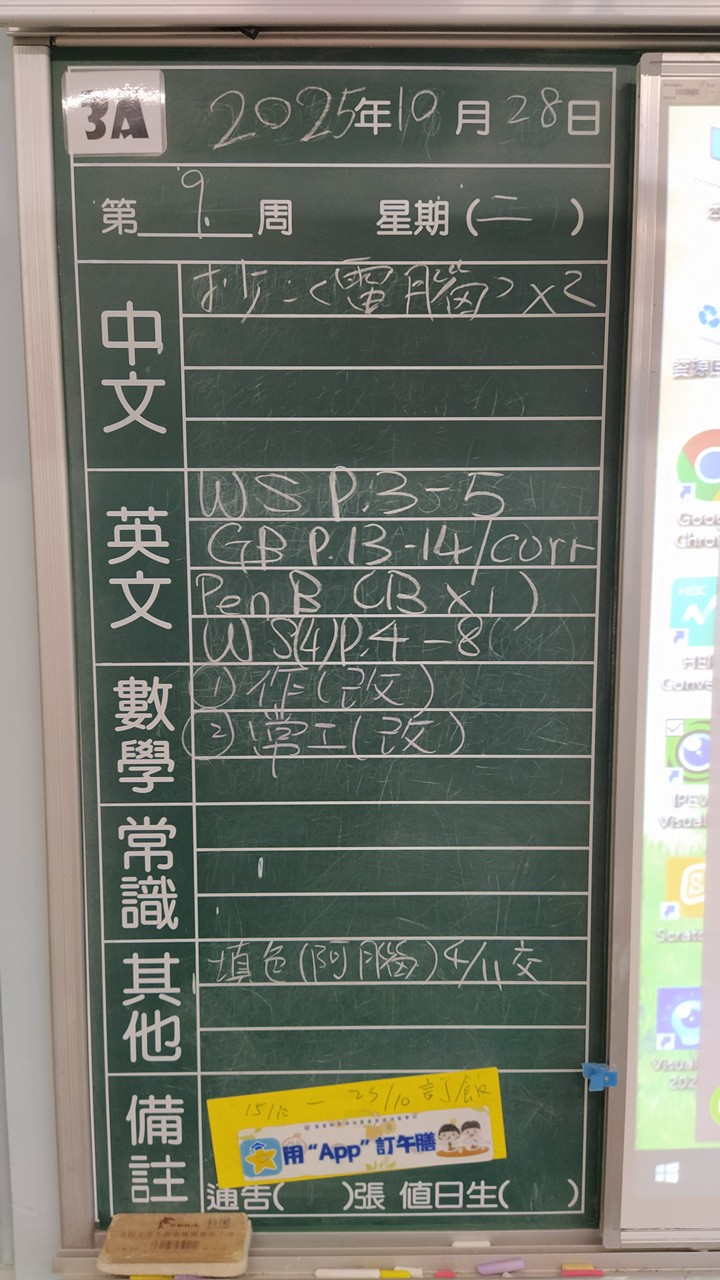 3A
2025年10月28日
第9周 星期(二)
中文
抄:〈電腦〉x2
英文
WS P.3-5
GB P.13-14/corr
Pen B (B x 1)
WS(4)P.4-8
數學
①作(改)
②堂工(改)
常識
其他
填色(阿腦)4/11交
備註
15/10 - 25/10 訂飯
用“App”訂午膳
通告( )張 值日生( )
Scratc
Visual
202